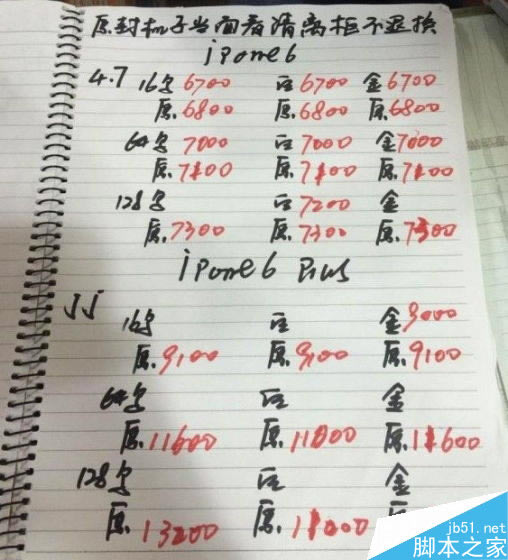 原封机子当面看清离柜不退换
iPone6
4.7 16G 6700 白 6700 金 6700
原.6800 原.6800 原.6800
64G 7000 白 7000 金 7000
原.7100 原.7100 原.7100
128G 白 7200 金
原.7300 原.7300 原.7300
iPone6 Plus
16G 白 金 9000
原.9100 原.9100 原.9100
64G 白 金
原.11600 原.11800 原.11600
128G 白 金
原.13200 原.
jb51.net
脚本之家